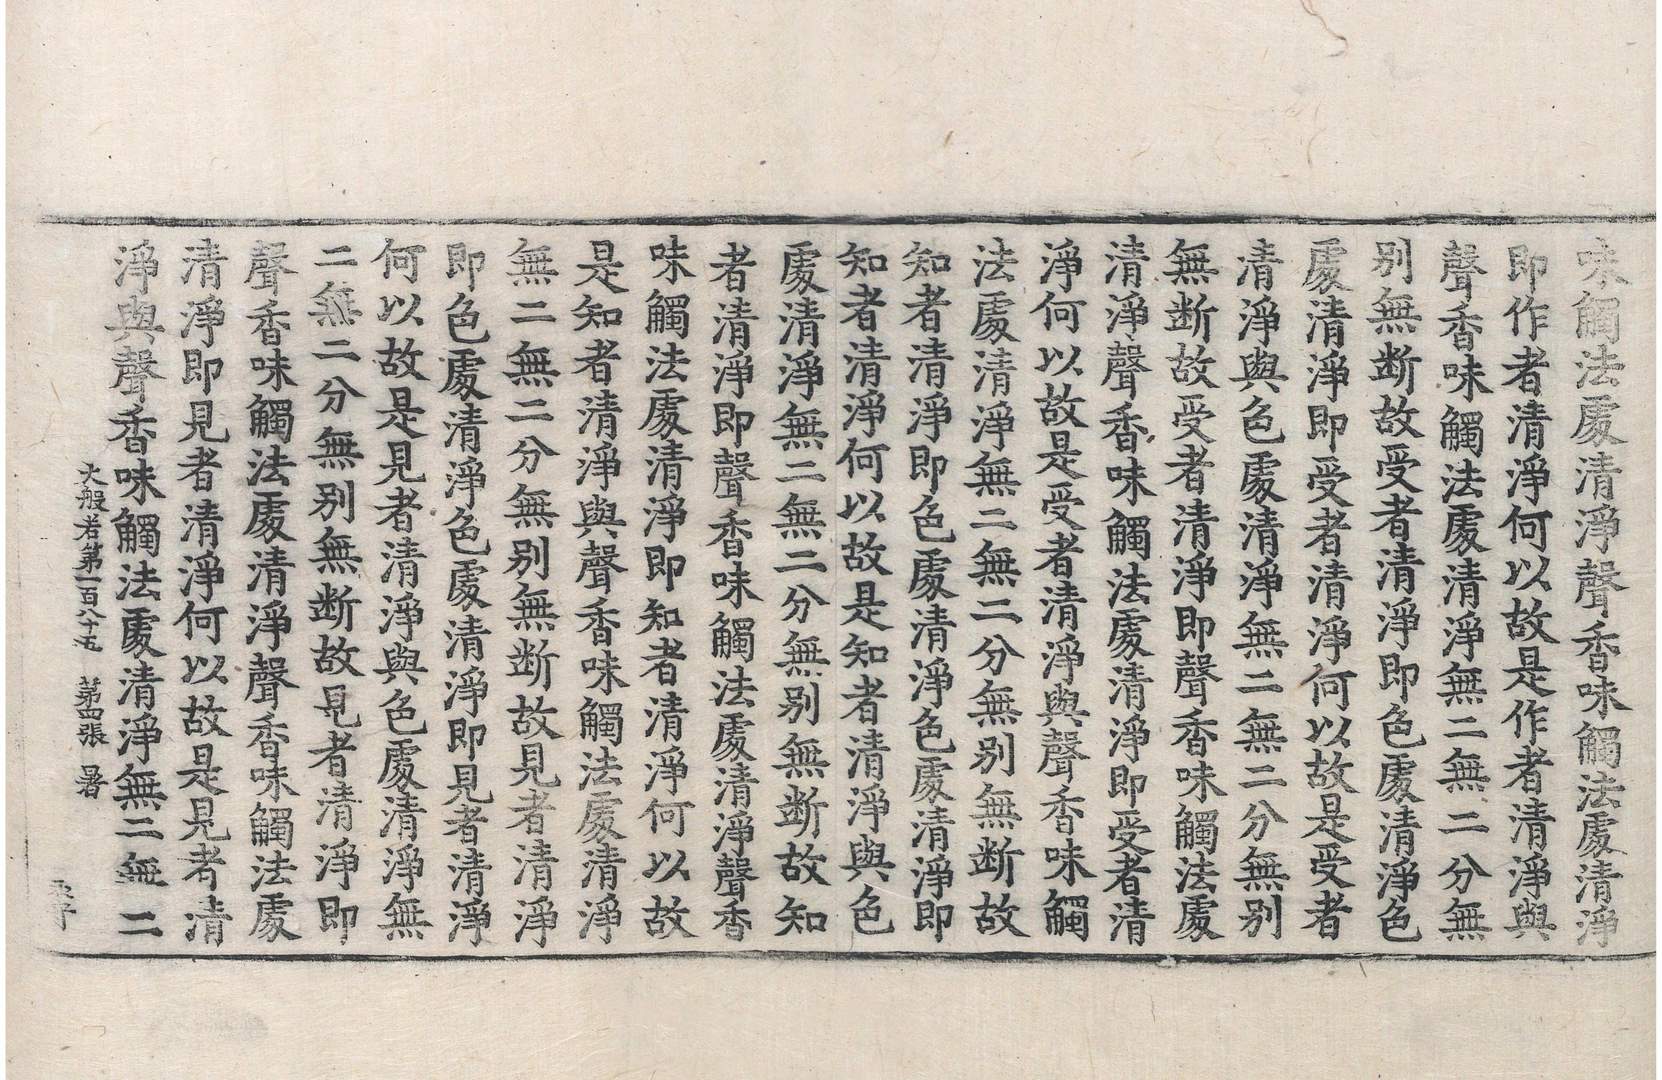 味觸法處清淨聲香味觸法處清淨
即作者清淨何以故是作者清淨與
聲香味觸法處清淨無二無二分無
别無断故受者清淨即色處清淨色
處清淨即受者清淨何以故是受者
清淨與色處清淨無二無二分無别
無断故受者清淨即聲香味觸法處
清淨聲香味觸法處清淨即受者清
淨何以故是受者清淨與聲香味觸
法處清淨無二無二分無别無断故
知者清淨即色處清淨色處清淨即
知者清淨何以故是知者清淨與色
處清淨無二無二分無别無断故知
者清淨即聲香味觸法處清淨聲香
味觸法處清淨即知者清淨何以故
是知者清淨與聲香味觸法處清淨
無二無二分無别無断故見者清淨
即色處清淨色處清淨即見者清淨
何以故是見者清淨與色處清淨無
二無二分無别無断故見者清淨即
聲香味觸法處清淨聲香味觸法處
清淨即見者清淨何以故是見者清
淨與聲香味觸法處清淨無二無二
大般若第一百八十五 第四張 暑